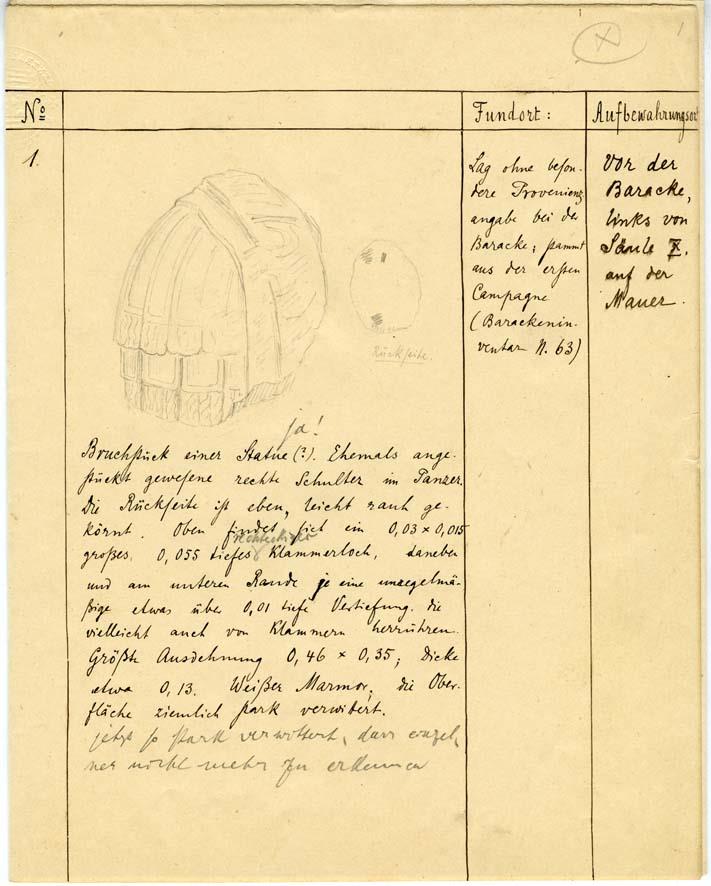 1
X
No
Fundort:
Aufbewahrungsort
1.
Lag ohne beson-
dere Provenienz
angabe bei der
Baracke; stammt
aus der ersten
Campagne
(Barackenin-
ventar N. 63)
Vor der
Baracke,
links von
Säule X.
auf der
Mauer.
Rückseite.
ja!
Bruchstück einer Statue (?). Ehemals ange-
stückt gewesene rechte Schulter im Panzer.
Die Rückseite ist eben, leicht rauh ge-
körnt. Oben findet sich ein 0,03 × 0,015
rechteckiges
großes, 0,055 tiefes Klammerloch, daneben
und am unteren Rande je eine unregelmä-
ßige etwas über 0,01 tiefe Vertiefung, die
vielleicht auch von Klammern herrühren.
Größte Ausdehnung 0,46 × 0,35; Dicke
etwa 0,13. Weißer Marmor, die Ober-
fläche ziemlich stark verwittert.
jetzt so stark verwittert, dass einzel-
nes nicht mehr zu erkennen